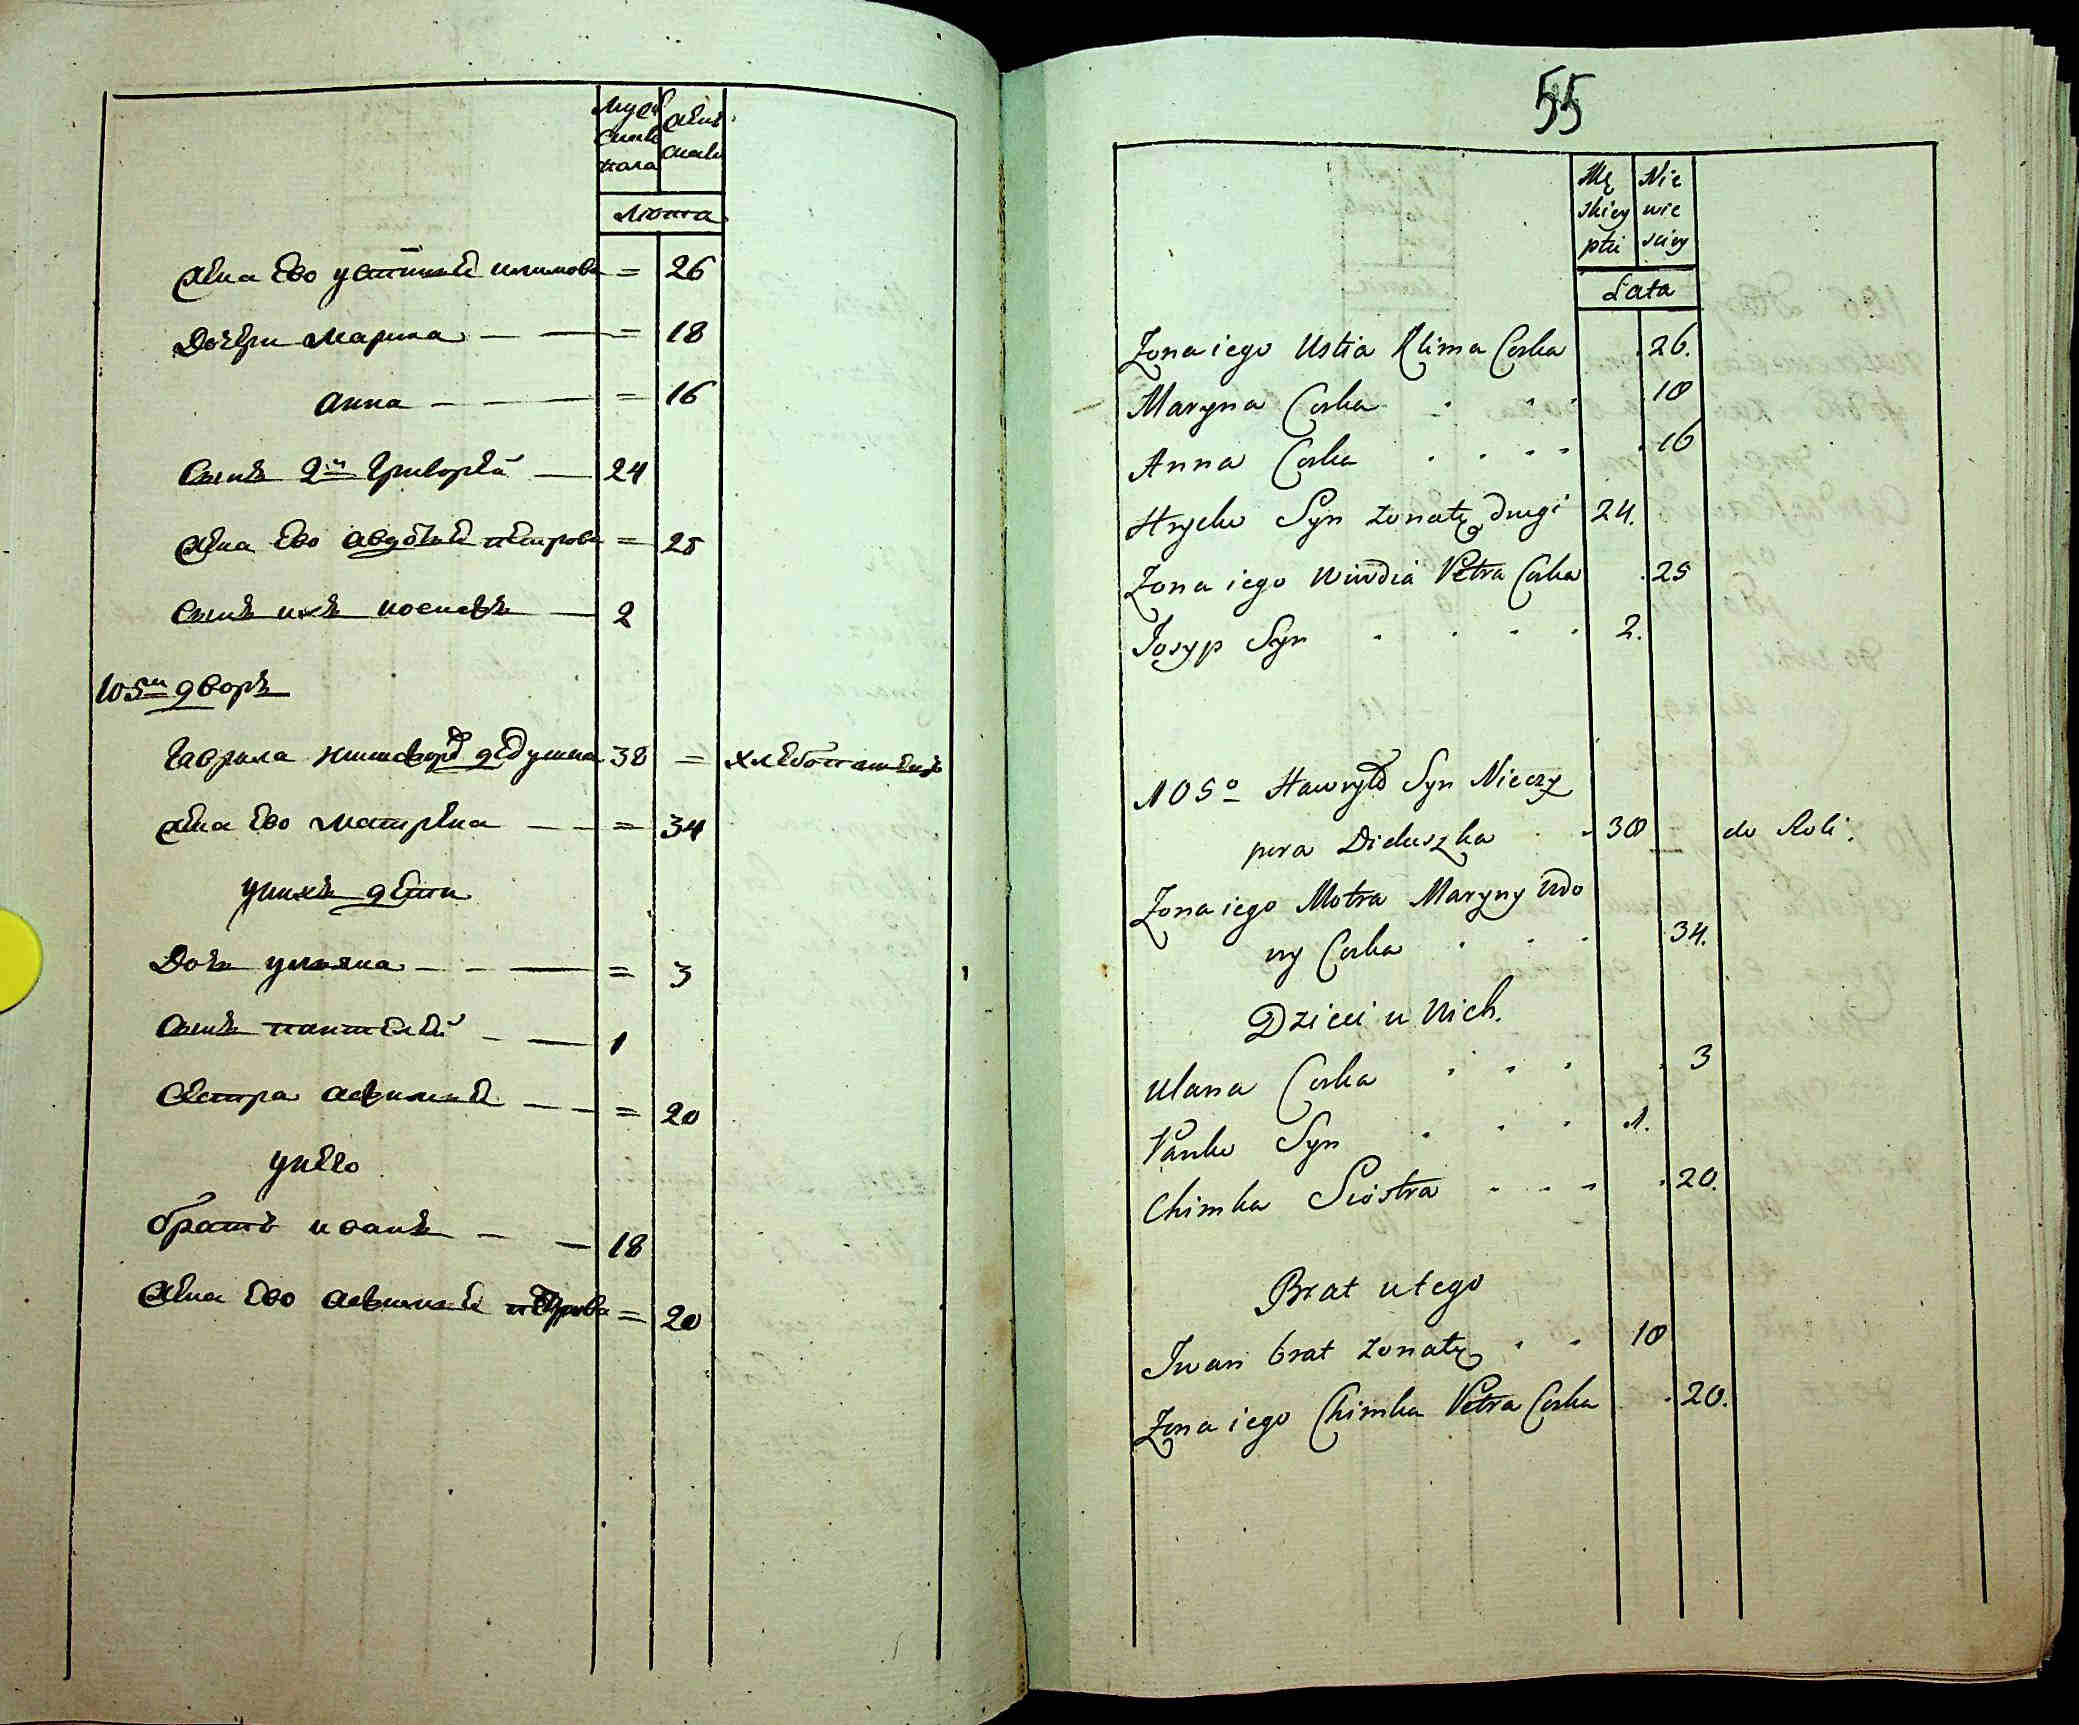 Муже
ска
пола
Жен
ска
Лѣта
Жена Ево устинья климова = 26
Дочери марина = 18
анна = 16
Сынъ 2й григорей 24
Жена Ево авдотья петрова = 25
Сынъ ихъ иосифъ 2
105й дворъ
гаврила дедушка 38 = хлебопашецъ
Жена Ево матрена = 34
у нихъ дети
Дочь ульяна = 3
Сынъ пантелей 1
Сестра афимья = 20
у него
братъ иванъ 18
Жена Ево афимья петрова = 20
55
Mę
skiey
płci
Nie
wie
sciey
Lata
Zona iego Ustia Klima Corka 26.
Maryna Corka 18
Anna Corka 16
Hryćko Syn zonaty drugi 24.
Zona iego Petra Corka 25
Josyp Syn 2.
105o Hawryło Syn Nieczy
pora Diduszka 38 do Roli.
Zona iego Motra Maryny Wdo
wy Corka 34.
Dzieci u Nich.
Ulana Corka 3
Panko Syn 1.
Chimka Siostra 20.
Brat u tego
Iwan brat zonaty 18
Zona iego Chimka Petra Corka 20.